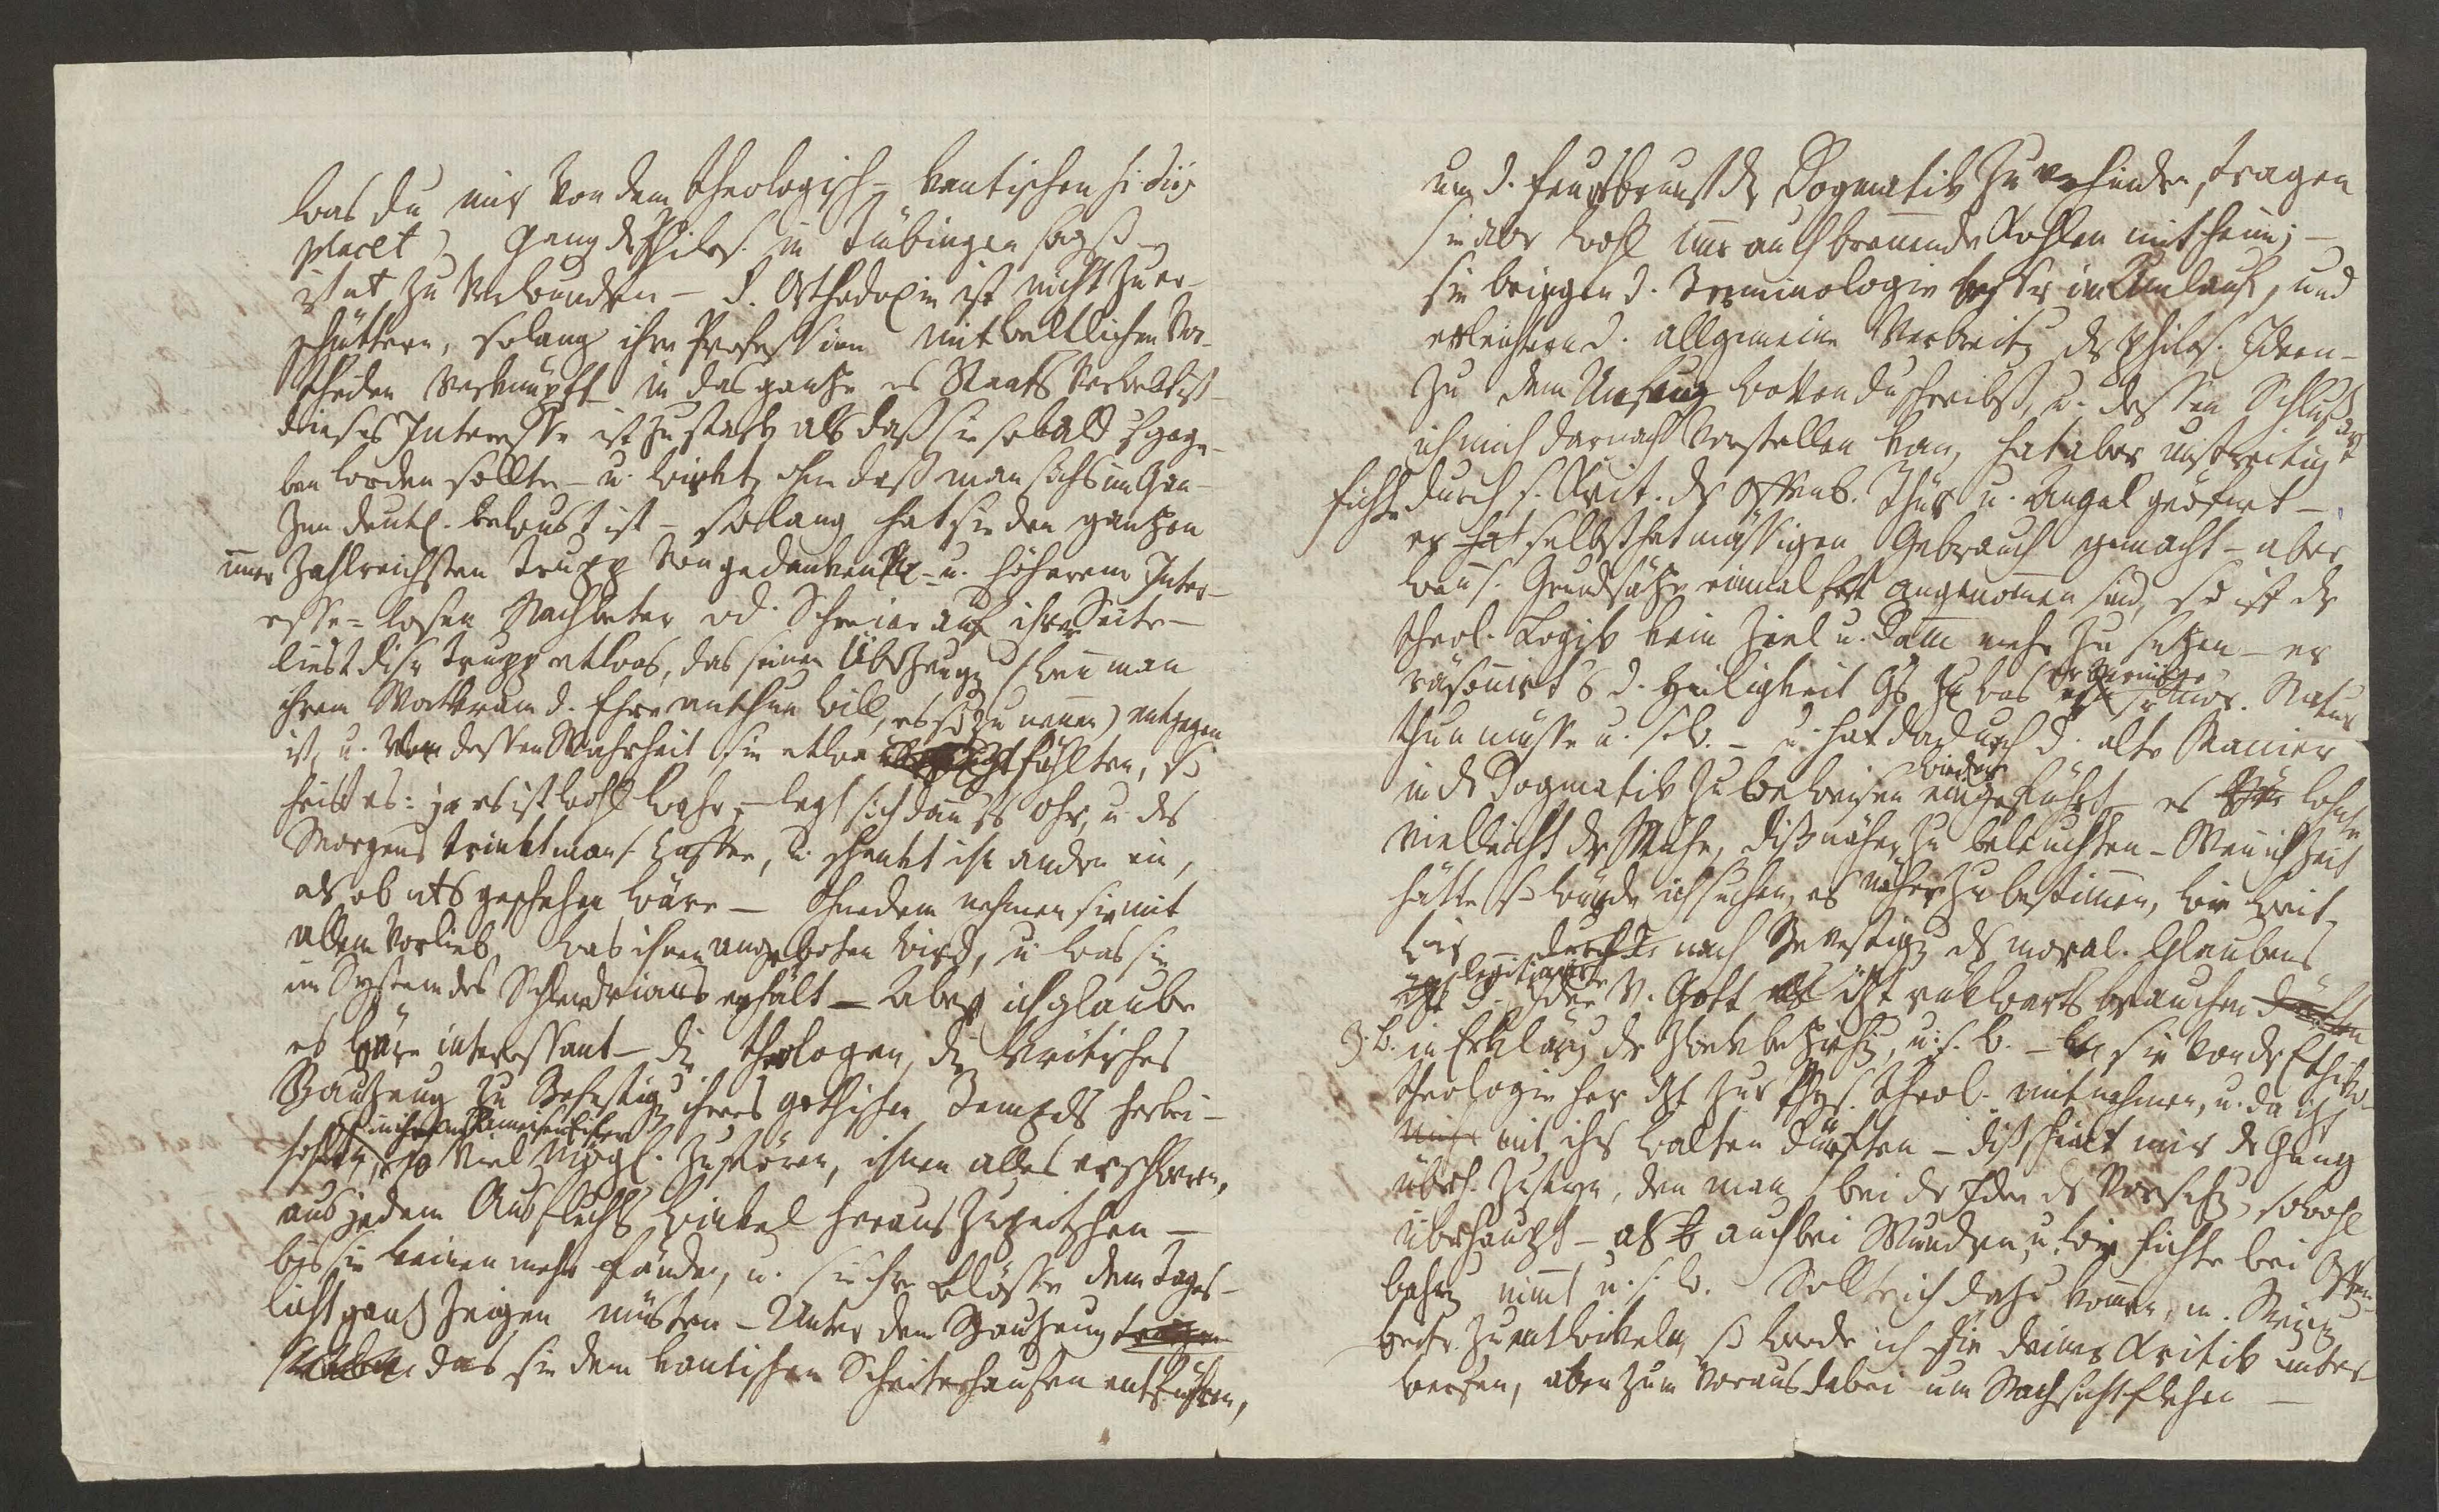 was du mir von dem theologisch-kantischen (si diis
placet) Gang der Philos. in Tübingen sagst
ist nt zu verwundern – d. Orthodoxie ist nicht zu er-
schüttern, solang ihre Profession mit weltlichen Vor-
theilen verknüpft in das ganze es Staats verwebt ist
dieses Interesse ist zu stark als daß sie sobald aufgege-
ben werden sollte – u. wirkt, ohne daß man sichs im Gan-
zen deutl. bewust ist – solang hat sie den ganzen
immer zahlreichsten Trupp von gedanken- u. höherem Inter-
esse-losen Nachbeter od. Schreier auf ihrer Seite –
liest diser Trupp etwas, das seiner Überzeugg (wenn man
ihrem Wortkram d. Ehre anthun will, es so zu nennen) entgegen
ist, u. von dessen Wahrheit sie etwa fühlten, so
heißt es: ja es ist wohl wahr – legt sich dann aufs Ohr, u. des
Morgens trinkt man s. Caffee, u. schenkt ihn andern ein,
als ob nts geschehen wäre – Ohnedem nehmen sie mit
allem vorlieb, was ihnen angeboten wird, u. was sie
im System des Schlendrians erhält – Aber ich glaube
es wäre interessant – die Theologen, die kritisches
Bauzeug zu Befestigg ihres gothischen Tempels herbei-
schaffen, in ihrem Ameiseneifer so viel mögl. zu stören, ihnen alles erschweren,
aus jedem Ausfluchts Winkel herauszupeitschen –
bis sie keinen mehr fänden, u. sie ihre Blösse dem Tages-
licht ganz zeigen müsten – Unter dem Bauzeug
das sie dem kantischen Scheiterhaufen entführen,
um d. Feuersbrunst der Dogmatik zu verhindern, tragen
sie aber wohl immer auch brennende Kohlen mit heim; –
sie bringen d. Terminologie in Umlauf, und
erleichtern d. allgemeine Verbreitg der philos. Ideen –
Zu dem Unfug wovon du schreibst, u. dessen Schlußart
ich mir darnach vorstellen kan, hat aber unstreitig
Fichte durch s. Krit. der Offenb. Thür u. Angel geöfnet –
er hat selbst mässigen Gebrauch gemacht – aber
wenn s. Grundsäze einmal fest angenommen sind, so ist der
theol. Logik kein Ziel u. Damm mehr zu sezen – er
räsonnirt aus d. Heiligkeit Gs was er vermöge sr mor. Natur
thun müsse u. s. w. – u. hat dadurch d. alte Manier
in der Dogmatik zu beweisen wieder eingeführt – es lohnte
vielleicht der Mühe, diß näher zu beleuchten – Wenn ich Zeit
hätte so würde ich suchen, es näher zu bestimmen, wie weit
wir – nach Bevestigg des moral. Glaubens
d. legitimirte Idee v. Gott izt rükwärts brauchen
z. B. in Erklärg der Zwekbeziehg, u. s. w. – sie von der Ethiko-
theologie her izt zur Physikotheol. mitnehmen, u. da izt
mit ihr walten dürften – diß scheint mir der Gang
überh. zu seyn, den man bei der Idee der Vorsehg sowohl
überhaupt – als auch bei Wundern, u. wie Fichte bei Offen-
bahrg nimmt u. s. w. Sollte ich dazu kommen, m. Meing
weiter zu entwikeln, so werde ich sie deiner Kritik unter-
werfen, aber zum voraus dabei um Nachsicht flehen –